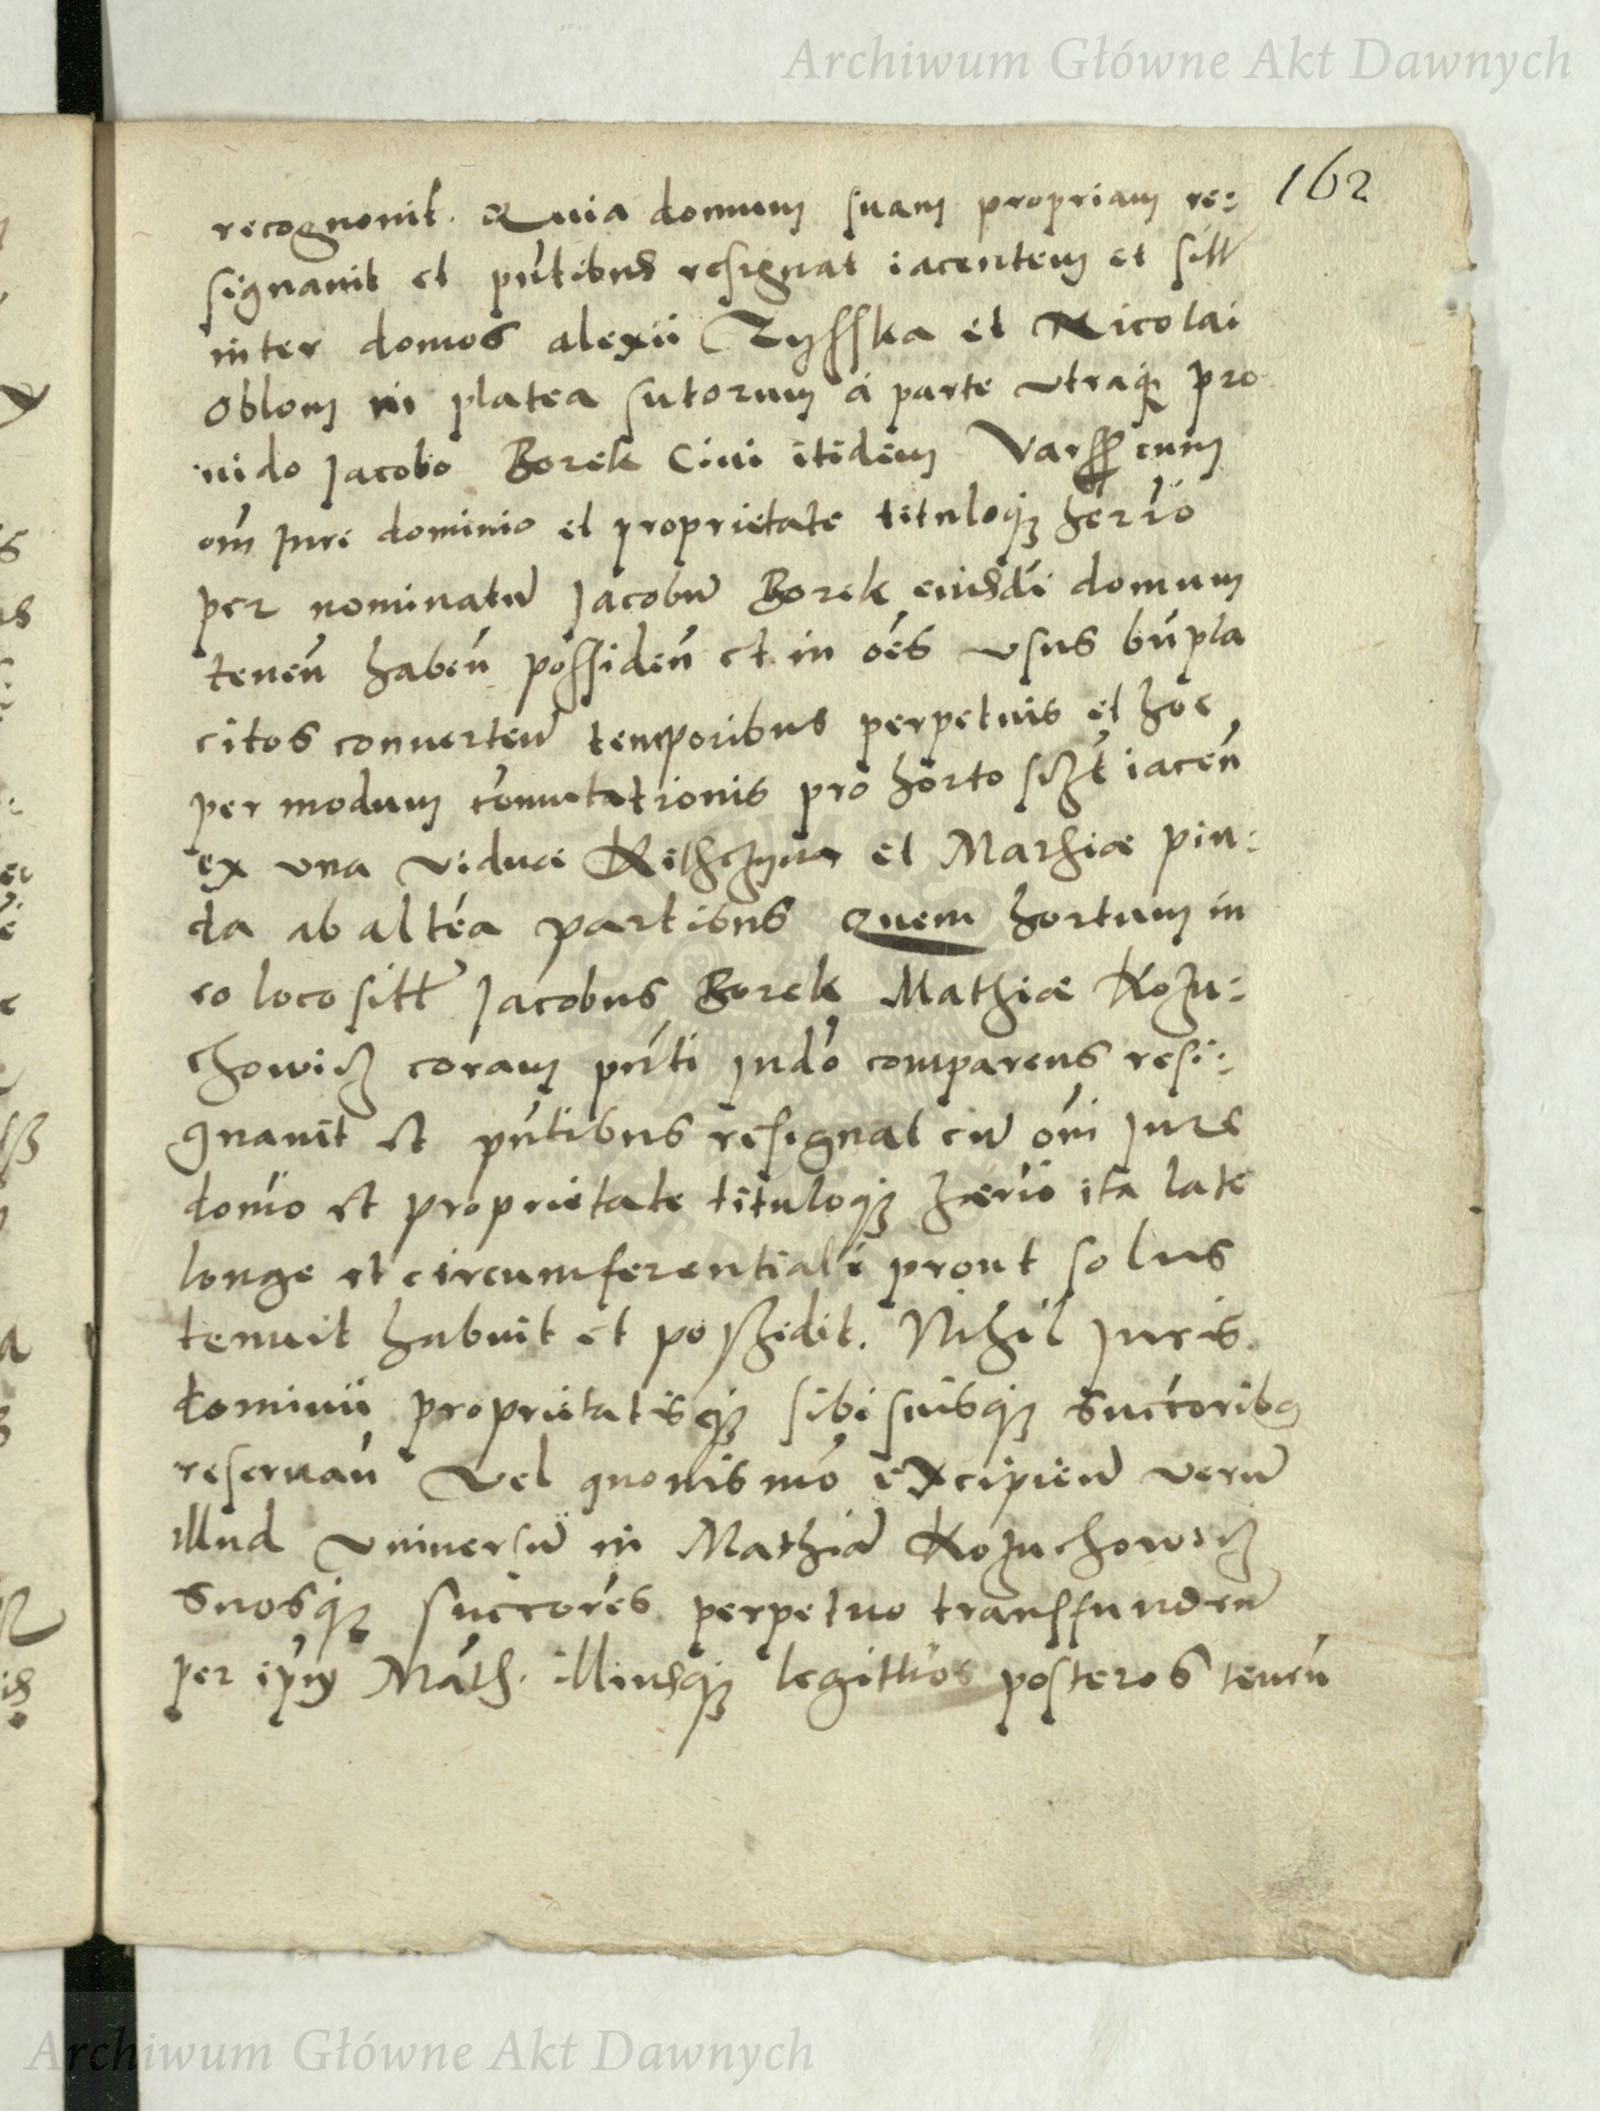 Archiwum Główne Akt Dawnych
162
recognouit. Quia domum suam propriam re:
signauit et pñtibus resignat iacentem et sitt
inter domos alexii Zysska et Nicolai
Oblom in platea sutorum á parte vtraq₃ pro
uido Jacobo Borek Ciui itidem Varss cum
om̃ Jure dominio et proprietate tituloq₃ herr̃io
per nominatũ Jacobũ Borek eiusdẽ domum
teneñ habeñ possideñ et in oẽs vsus bñpla
citos conuerteñ temporibus perpetuis et hoc
per modum cõmutationis pro horto siȝł iaceñ
ex vna viduæ et Mathiæ pin:
da ab altẽa partibus Quem hortum in
eo loco sitt Jacobus Borek Mathiæ Kozu:
chowicz coram pñti Judõ comparens resi:
gnauit et pñtibus resignat cũ om̃i Jure
domĩo et proprietate tituloq₃ hærĩo ita late
longe et circumferentiali prout solus
tenuit habuit et possedit. Nihil Juris
dominii proprietatisq₃ sibi suisq₃ succõribq
reseruañ Vel quouismõ excipieñ verũ
illud vniuersũ in Mathiã Kozuchowicz
suosq₃ succõres perpetuo transfundeñ
per ip̃m Math. illiusq₃ legittĩos posteros teneñ
Archiwum Główne Akt Dawnych